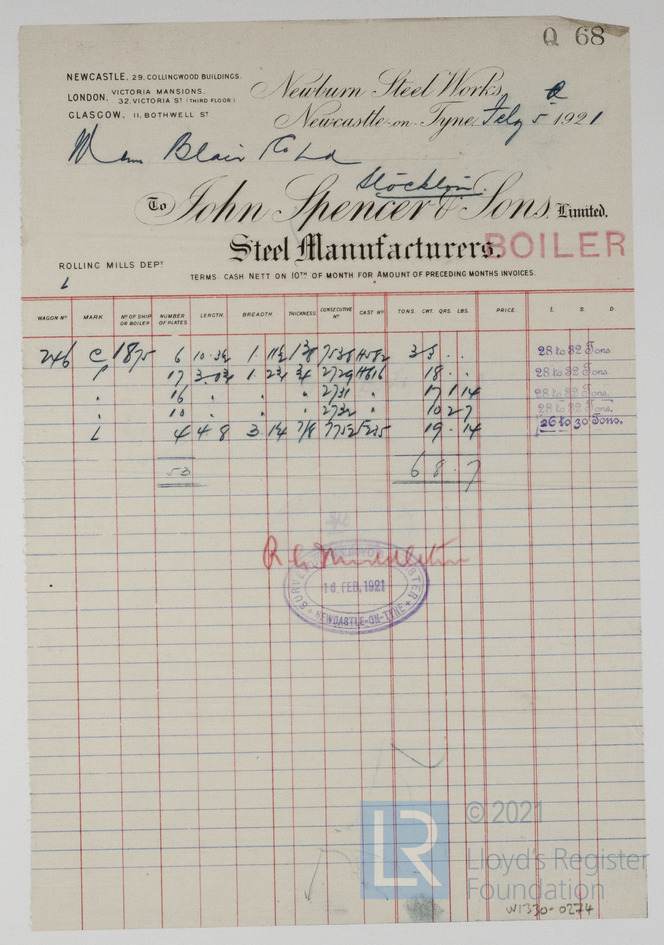 Q 68
NEWCASTLE, 29, COLLINGWOOD BUILDINGS.
LONDON, VICTORIA MANSIONS, 32, VICTORIA ST (THIRD FLOOR)
GLASGOW, 11, BOTHWELL ST
Newburn Steel Works,
Newcastle-on-Tyne, Feby 5 1921
Blair Co Ld
Stockton.
To John Spencer & Sons, Limited,
Steel Manufacturers.
BOILER
ROLLING MILLS DEPT
TERMS: CASH NETT ON 10TH OF MONTH FOR AMOUNT OF PRECEDING MONTHS INVOICES.
L
WAGON No MARK No OF SHIP OR BOILER NUMBER OF PLATES LENGTH. BREADTH. THICKNESS CONSECUTIVE No CAST No TONS. CWT. QRS. LBS. PRICE. £ S. D.
246 C 1875 6 28 to 32 Tons
17 2729 18 . . 28 to 32 Tons
" 16 " " " 2731 " 17 1 14 28 to 32 Tons
" 10 " " " 2732 " 10 2 7 28 to 32 Tons.
L 4 4 8 7/8 19 . 14 26 to 30 Tons.
53 6 8 . 7
R G Middleton
SURVEYOR TO LLOYD'S REGISTER
10 FEB. 1921
NEWCASTLE-ON-TYNE
LR
© 2021
Lloyd's Register
Foundation
W1330-0274